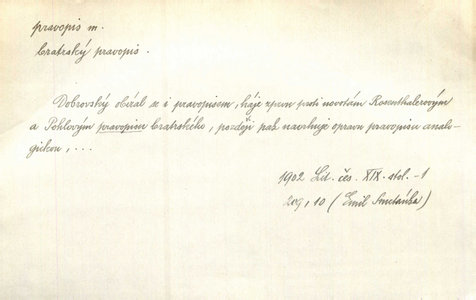 pravopis m.
bratrský pravopis.
Dobrovský obíral se i pravopisem, háje zprvu proti novotám Rosenthalerovým
a Pohlovým pravopisu bratrského, později pak navrhuje opravu pravopisu analo-
gickou, ...
1902 Lit. čes. XIX. stol. -1
209, 10 (Emil Smetánka)